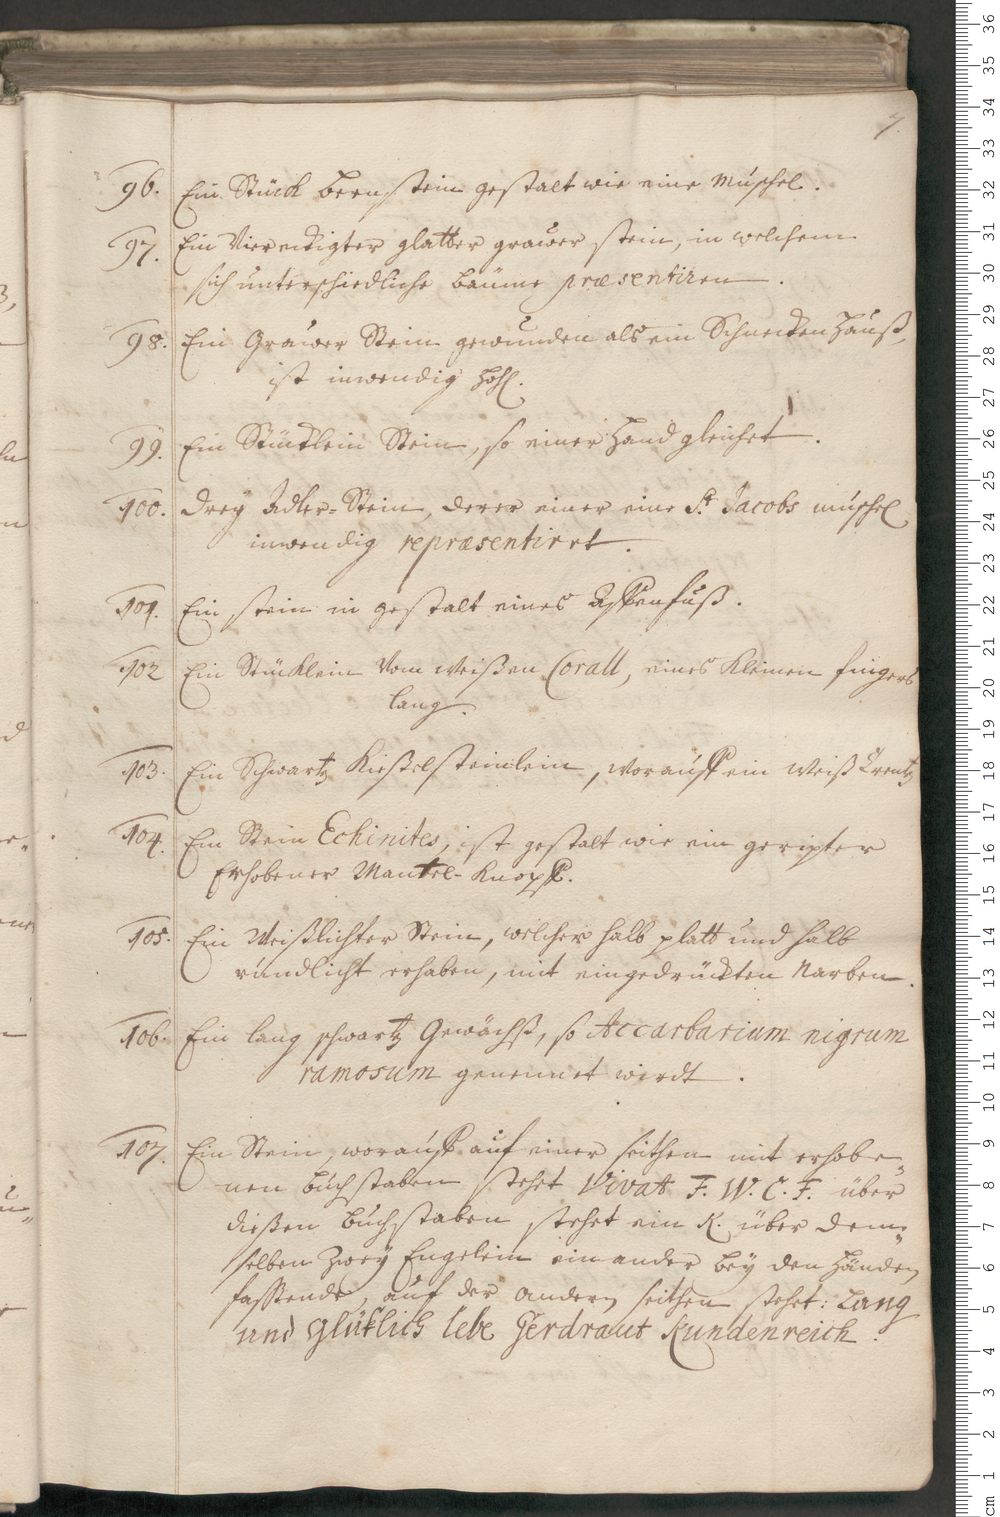 7.
96. Ein Stück bernstein gestalt wie eine Muschel.
97. Ein Viereckigter glatter grauer stein, in welchem
sich unterschiedliche bäume præsentiren.
98. Ein Grauer Stein gewunden als ein Schnecken Hauß,
ist inwendig hohl.
99. Ein Stücklein Stein, so einer Hand gleichet.
100. Drey Adler-Stein, derer einer eine St. Jacobs muschel
inwendig repræsentiret.
101. Ein stein in gestalt eines Affenfuß.
102 Ein Stücklein Vom weißen Corall, eines kleinen fingers
lang.
103. Ein Schwartz Kießelsteinlein, worauff ein weiß Creutz
104. Ein Stein Echinites, ist gestalt wie ein geripter
Erhobener Mantel-Knopff.
105. Ein Weißlichter Stein, welcher halb platt und halb
rundlicht erhaben, mit eingedrückten Narben.
106. Ein lang schwartz Gewächß, so Accarbarium nigrum
ramosum genennet wirdt.
107. Ein Stein, worauff auf einer seithen mit erhobe„
nen buchstaben stehet Vivat F. W. C. F. über
dießen buchstaben stehet ein K. über dem„
selben Zwey Engelein einander bey den Händen
fassende, auf der andern seithen stehet: Lang
und glüklich lebe Gerdraut Kundenreich.
36
35
34
33
32
31
30
29
28
27
26
25
24
23
22
21
20
19
18
17
16
15
14
13
12
11
10
9
8
7
6
5
4
3
2
1
cm